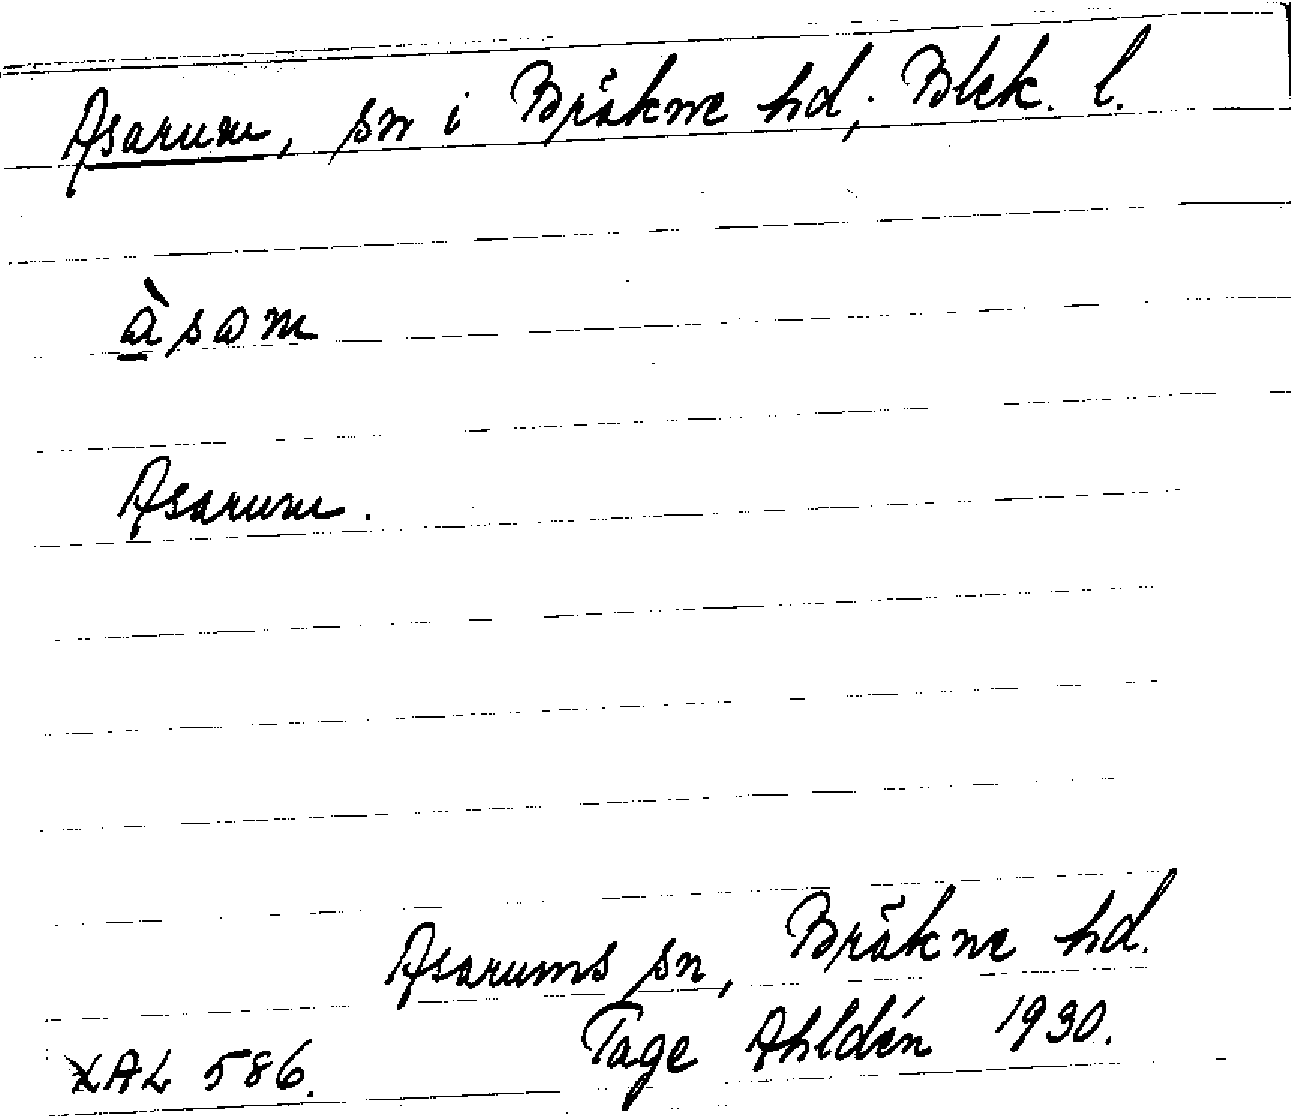 Asarum, sn i Bräkne hd; Blek. l.
àsam
Asarum.
Asarums sn, Bräkne hd.
Tage Ahldén 1930.
LAL 586.